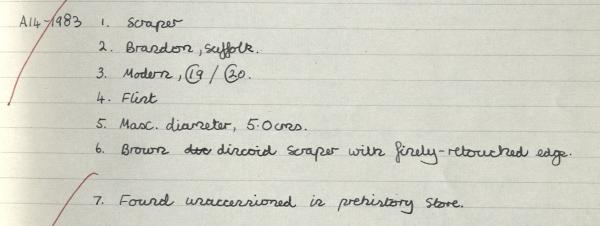 A14-1983 1. Scraper
2. Brandon, Suffolk.
3. Modern, 19 / 20.
4. Flint
5. Max. diameter, 5.0cms.
6. Brown discoid scraper with finely-retouched edge.
7. Found unaccessioned in prehistory store.